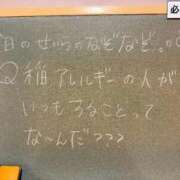 今日のせいらのなぞなぞ。
Q 稲アレルギーの人が
いつもすることって
な〜んだ???
必